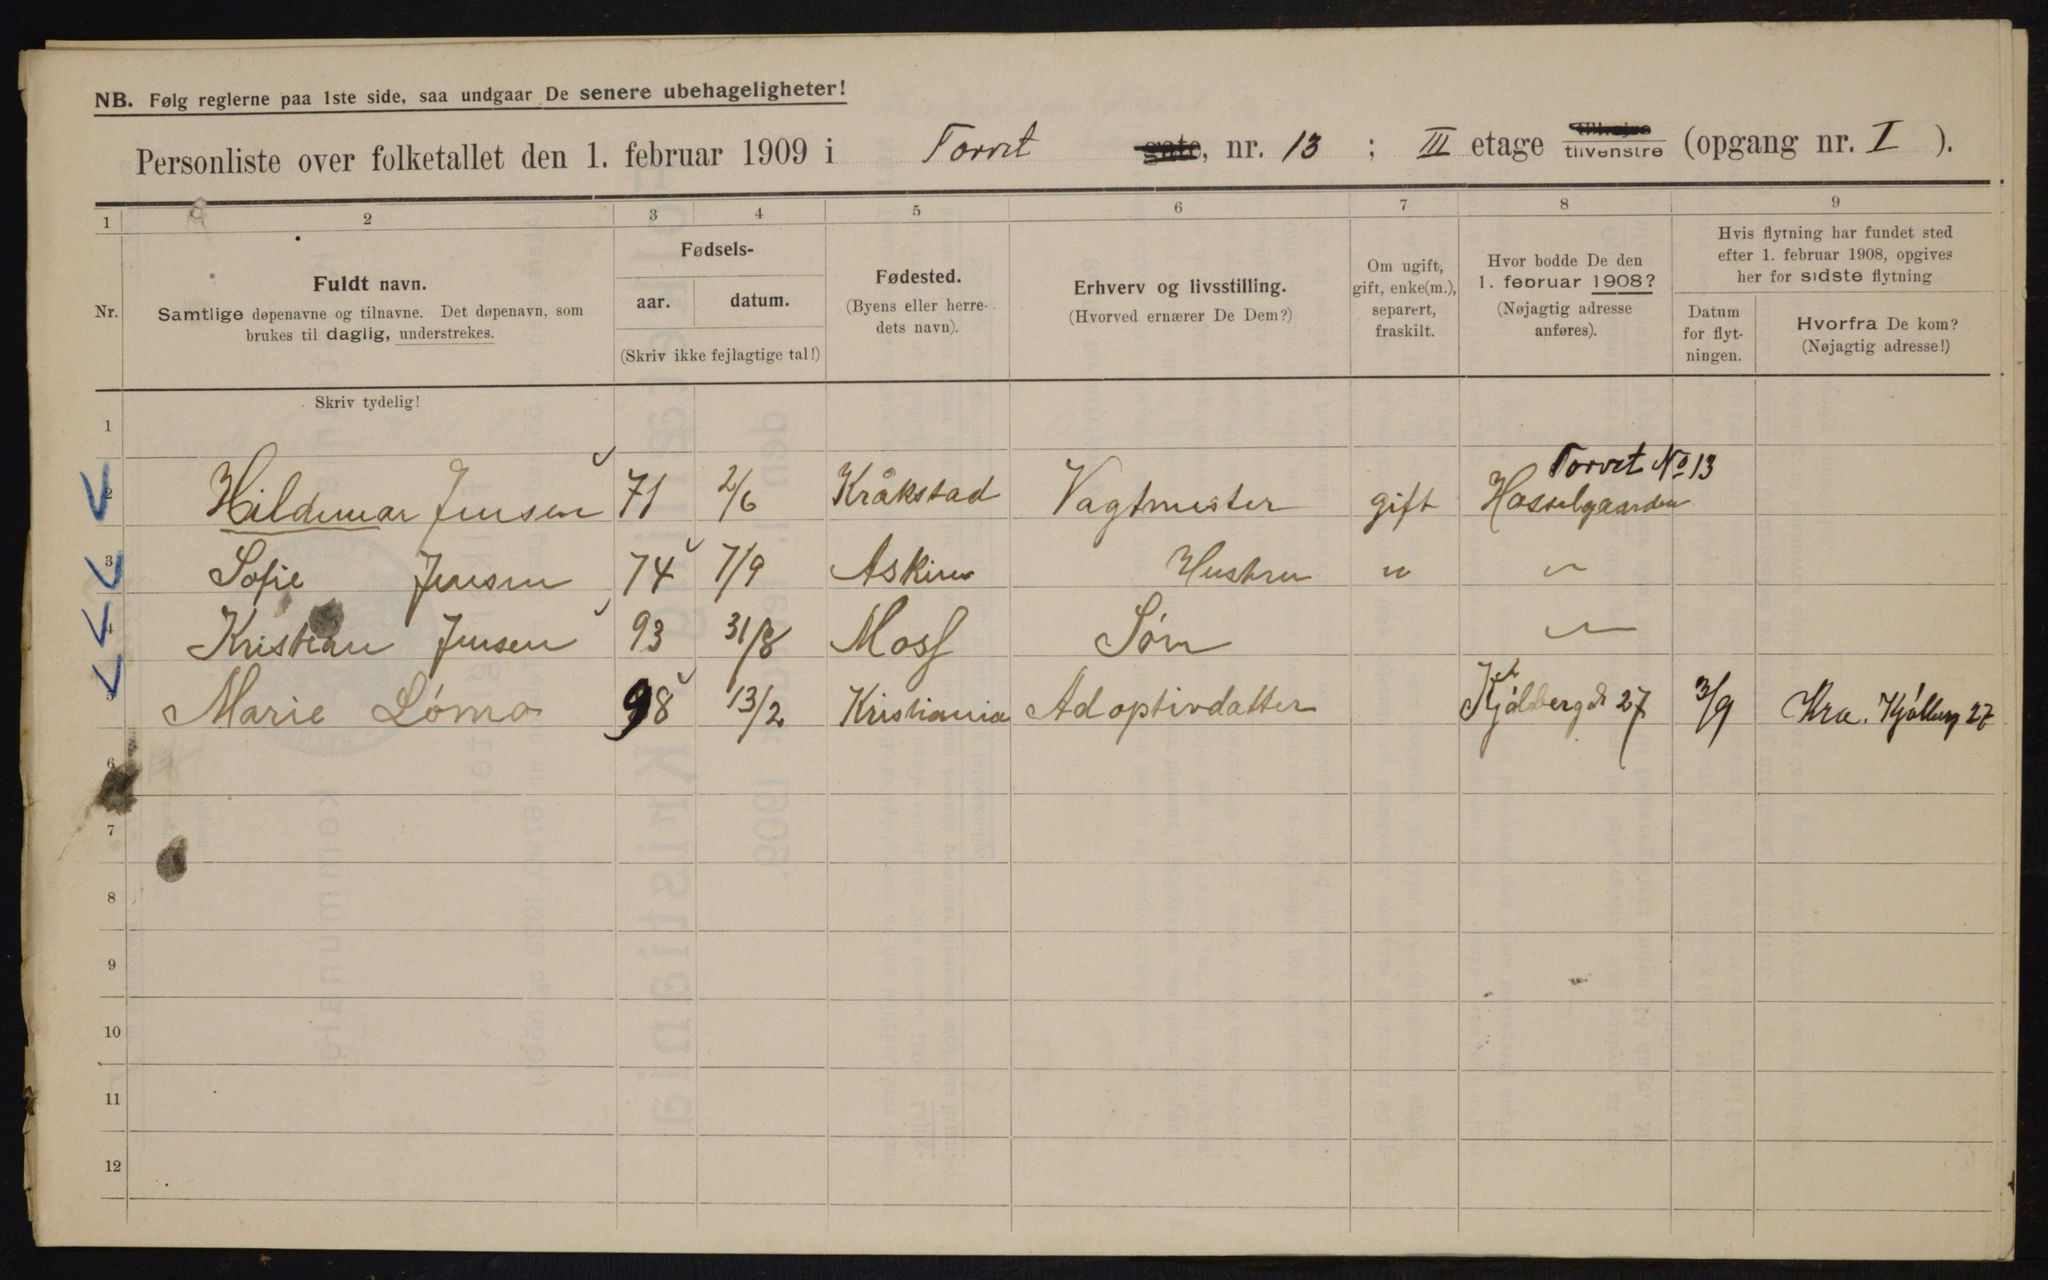 NB. Følg reglerne paa 1ste side, saa undgaar De senere ubehageligheter!
Personliste over folketallet den 1. februar 1909 i Torvet gate, nr. 13 ; III etage tilvenstre (opgang nr. I ).
1 2 3 4 5 6 7 8 9
Nr.
Fuldt navn.
Samtlige døpenavne og tilnavne. Det døpenavn, som
brukes til daglig, understrekes.
Skriv tydelig!
Fødsels-
aar. datum.
(Skriv ikke fejlagtige tal!)
Fødested.
(Byens eller herre-
dets navn).
Erhverv og livsstilling.
(Hvorved ernærer De Dem?)
Om ugift,
gift, enke(m.),
separert,
fraskilt.
Hvor bodde De den
1. februar 1908?
(Nøjagtig adresse
anføres).
Hvis flytning har fundet sted
efter 1. februar 1908, opgives
her for sidste flytning
Datum
for flyt-
ningen.
Hvorfra De kom?
(Nøjagtig adresse!)
1
Torvet No 13
2 Hildemar Jensen 71 2/6 Kråkstad Vagtmester gift Hasselgaarden
3 Sofie Jensen 74 7/9 Askim Hustru " "
4 Kristian Jensen 93 31/8 Moss Søn "
5 Marie Lømo 98 13/2 Kristiania Adoptivdatter Kjølberg gt 27 3/9 Kra. Kjølberg 27
6
7
8
9
10
11
12